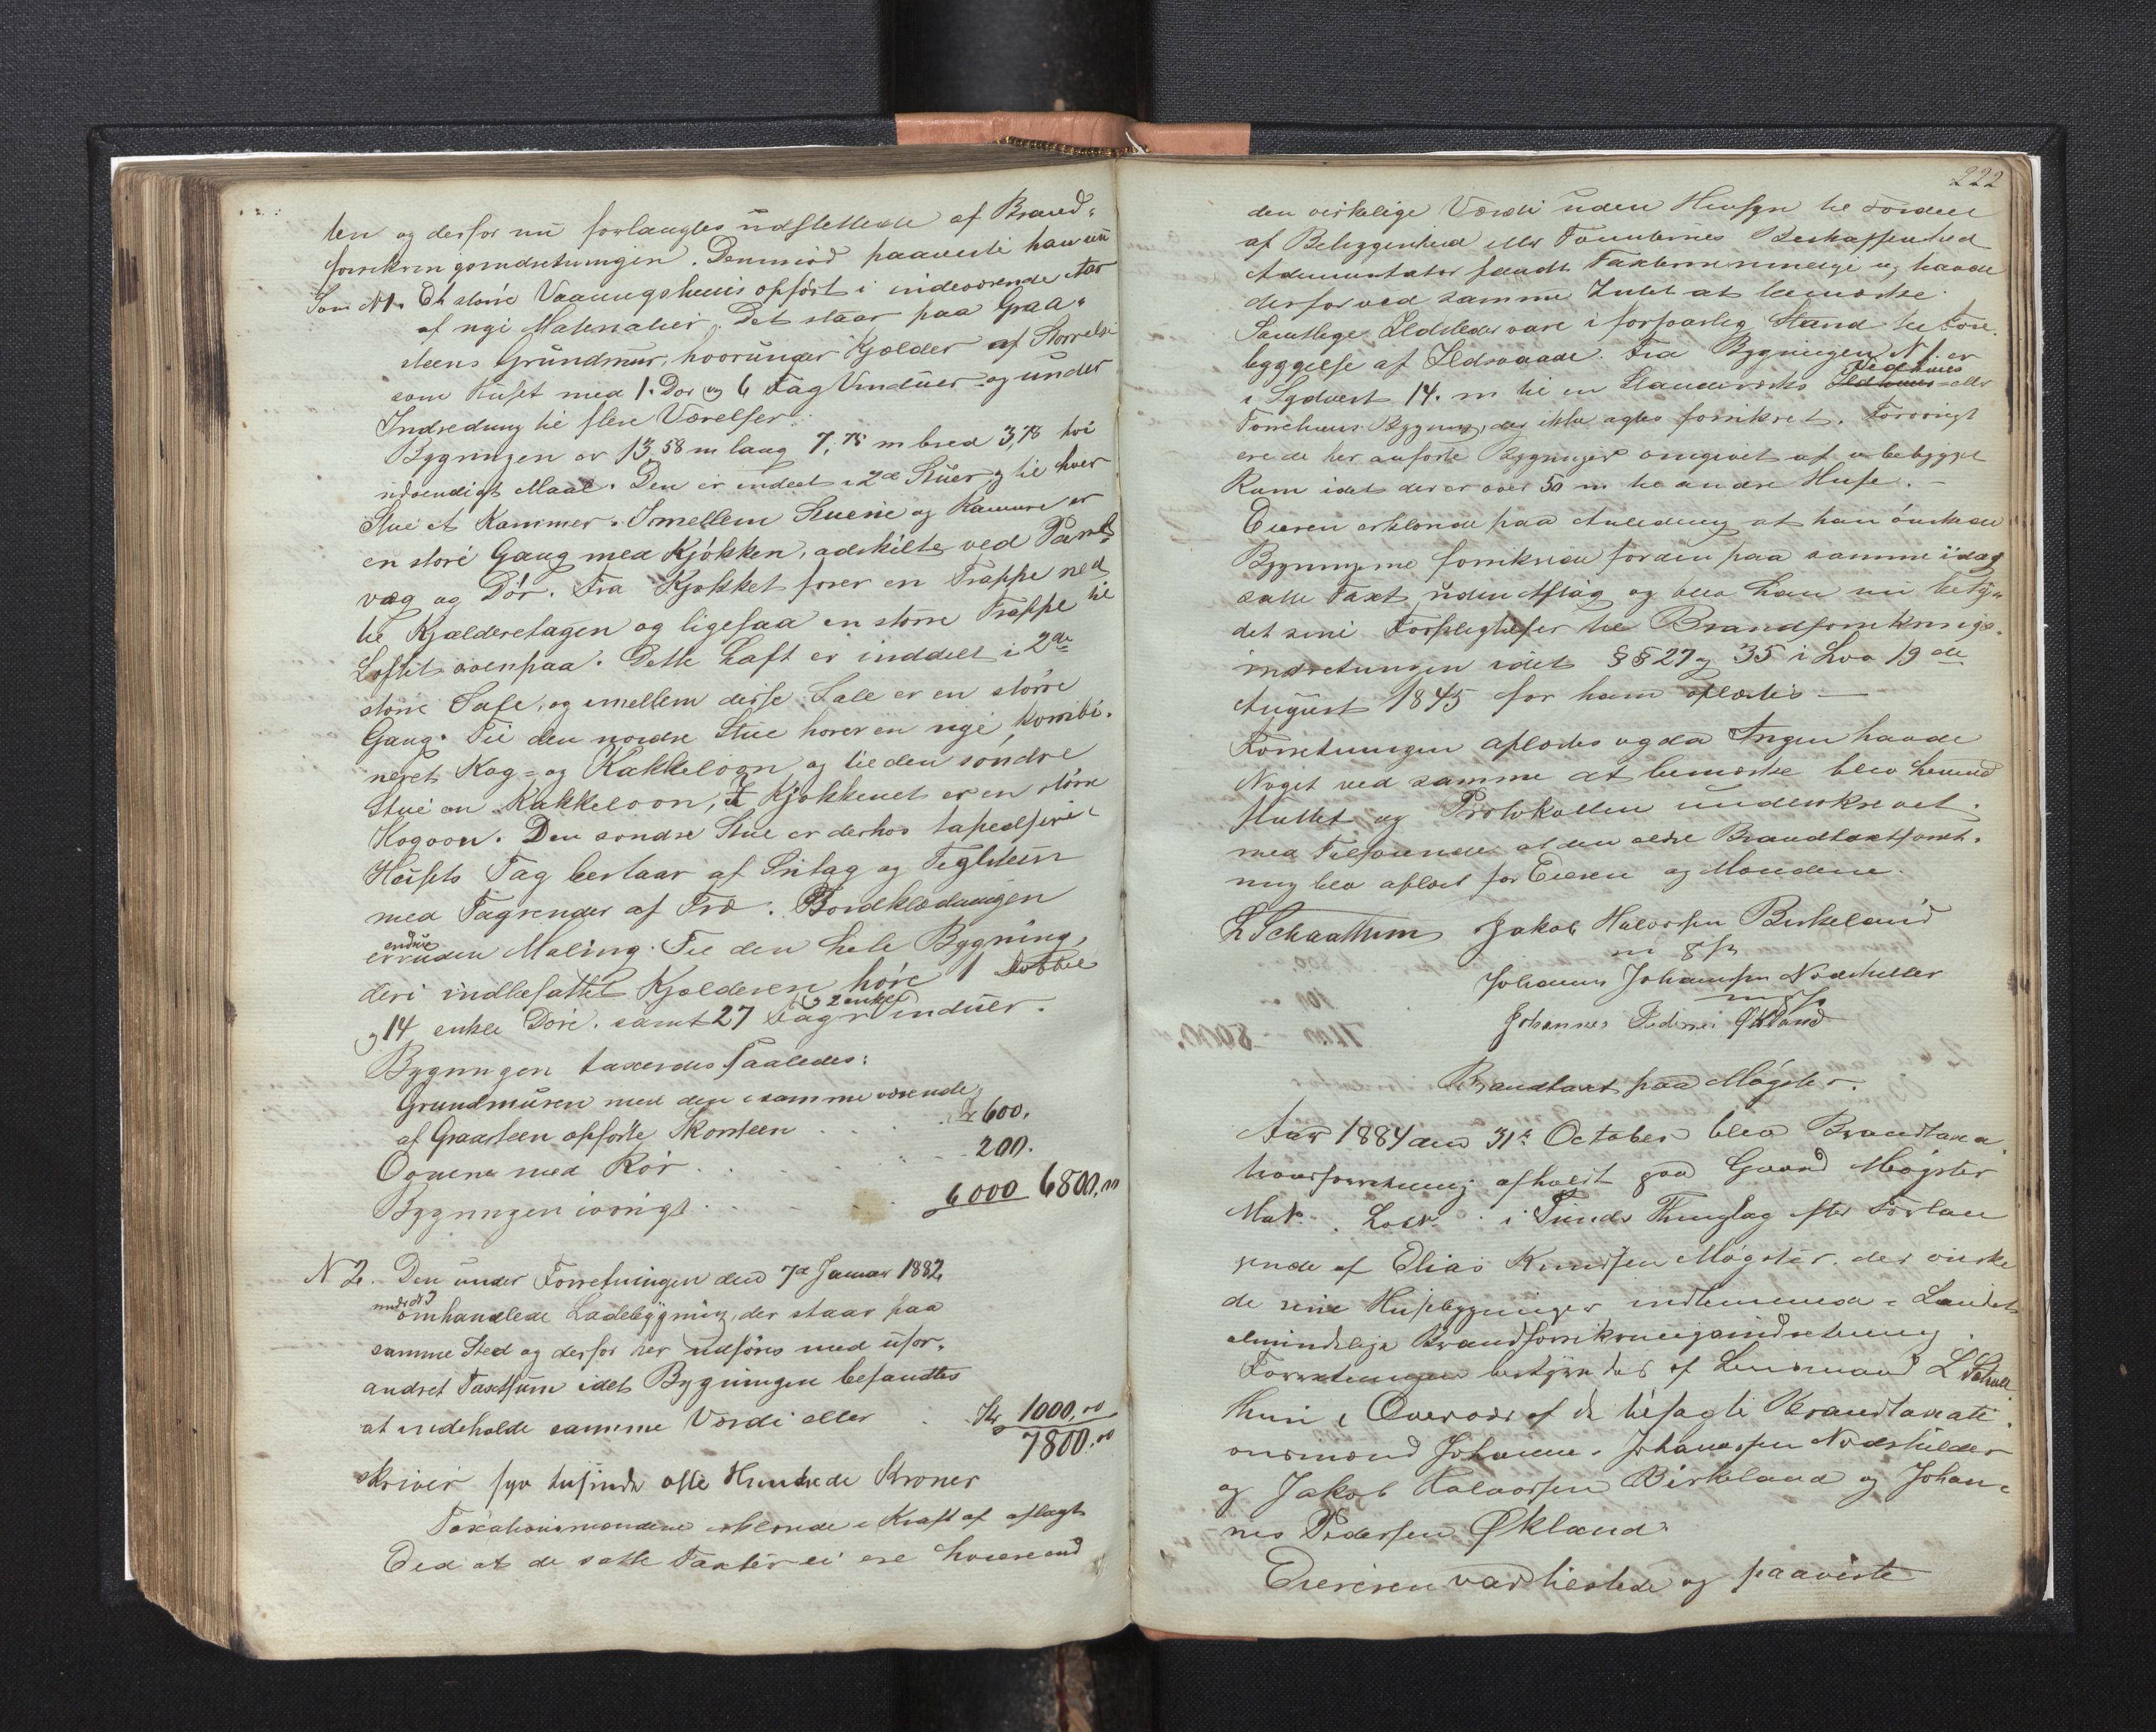 ten og derfor nu forlangtes udslettede af Brand-
forsikringsindretningen. Derimod paaviste han nu
Som N 1. Et større Vaaningshuus opført i indeværende Aar
af nye Materialier. Det staar paa Graa-
steens Grundmur, hvorunder Kjælder af Størrelse
som Huset med 1. Dør og 6 Fag Vinduer og under
Indredning til flere Værelser.
Bygningen er 13,58 m lang 7,75 m bred 3,78 høi
udvendigt Maal. Den er indeelt i 2de Stuer og til hver
Stue et Kammer. Imellem Stuerne og Kamrene er
en større Gang med Kjøkken, adskilte ved Panel
væg og Dør. Fra Kjøkket fører en Trappe ned
til Kjælderetagen og ligesaa en større Trappe til
Loftet ovenpaa. Dette Loft er inddelt i 2de
større Sale, og imellem disse Sale er en større
Gang. Til den nordre Stue hører en nye, kombi-
neret Kog- og Kakkelovn og til den søndre
Stue en Kakkelovn, I Kjøkkenet er en større
Kogovn. Den søndre Stue er derhos tapedseret
Husets Tag bestaar af Sutag og Teglsteen
med Tagrender af Træ. Bordklædningen
endnu
er uden Maling. Til den hele Bygning,
deri indbefattet Kjælderen høre 1 dobbel
og 2 enkelt
og 14 enkle Døre. samt 27 Fag Vinduer.
Bygningen taxeredes saaledes:
Grundmuren med den i samme værende
af Graasteen opførte Skorsteen . . . Kr 600.
Ovnene med Rør . . . 200.
Bygningen iøvrigt . . . 6000 6800,00
N 2. Den under Forretningen den 7de Januar 1882
under N 3
omhandlede Ladebygning, der staar paa
samme Sted og derfor her udføres med ufor-
andret Taxtsum idet Bygningen befandtes
at indeholde samme Værdi eller . Kr 1000,00
7800,00
skriver syv tusinde otte Hundrede Kroner
Taxationsmændene erklærede i Kraft af aflagt
Eed at de satte Taxter ei ere høiere end
222
den virkelige Værdi uden Hensyn til Fordeel
af Beliggenhed eller Tomternes Beskaffenhed
Administrator fandt Taxterne rimelige og havde
derfor ved samme Intet at bemærke.
Samtlige Ildsteder vare i forsvarlig Stand til Fore-
byggelse af Ildsvaade. Fra Bygningen N 1. er
Vedhuus
i Sydvest 14. m til en Staureværks Ildhuus eller
Tørrehuus Bygning, der ikke agtes forsikret. Forøvrigt
ere de her anførte Bygninger omgivet af ubebygget
Rum idet der er over 50 m til andre Huse. -
Eieren erklærede paa Anledning at han ønskede
Bygningerne forsikrede for den paa samme idag
satte Taxt uden Afslag og blev han nu betyd-
det sine Forpligtelser til Brandforsikrings-
indretningen idet §§ 27 og 35 i Lov 19de
August 1845 for ham oplæstes -
Forretningen oplæstes og da Ingen havde
Noget ved samme at bemærke blev hermed
sluttet og Protokollen underskrevet.
med Tilføiende at den ældre Brandtaxtforret-
ning blev oplæst for Eieren og Mændene.
L Schaathum Jakob Halvorsen Birkeland
m f P
Johannes Johannesen Nødshilder
m f P
Johannes Pedersen Økland
Brandtaxt paa Møgster.
Aar 1884 den 31te October blev Brandtaxa-
tionsforretning afholdt paa Gaard Møgster
Mat. . Løbe . i Sunds Thinglag efter Forlan
gende af Elias Knudsen Møgster. der ønske
de sine Husebygninger indlemmede i Landets
almindelige Brandforsikringsindretning.
Forretningen bestyredes af Lensmand L Schaat-
hum i Overvær af de tilsagte Brandtaxati-
onsmænd Johannes Johannesen Nødshilder
og Jakob Halvorsen Birkeland og Johan-
nes Pedersen Økland.
Eieren var tilstede og paaviste